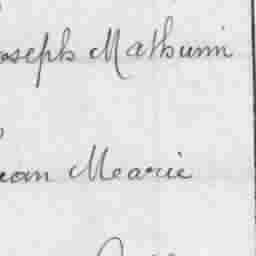 oseph Mathurin
ean Mearie